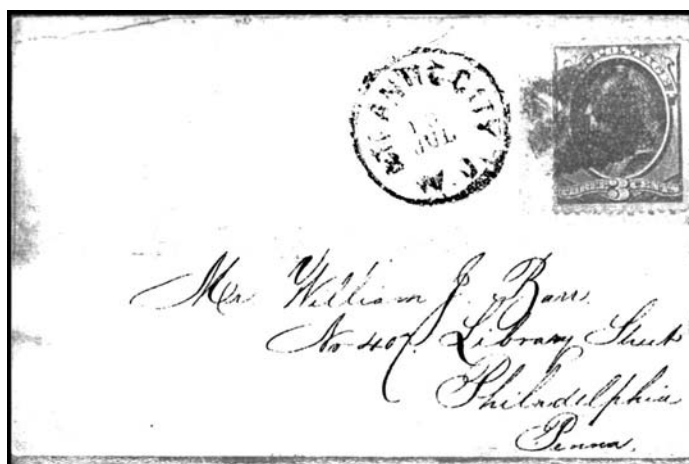 CITY
JUL
POSTAGE
THREE 3 CENTS
Mr William J. Barr.
No 407. Library Street
Philadelphia
Penna.